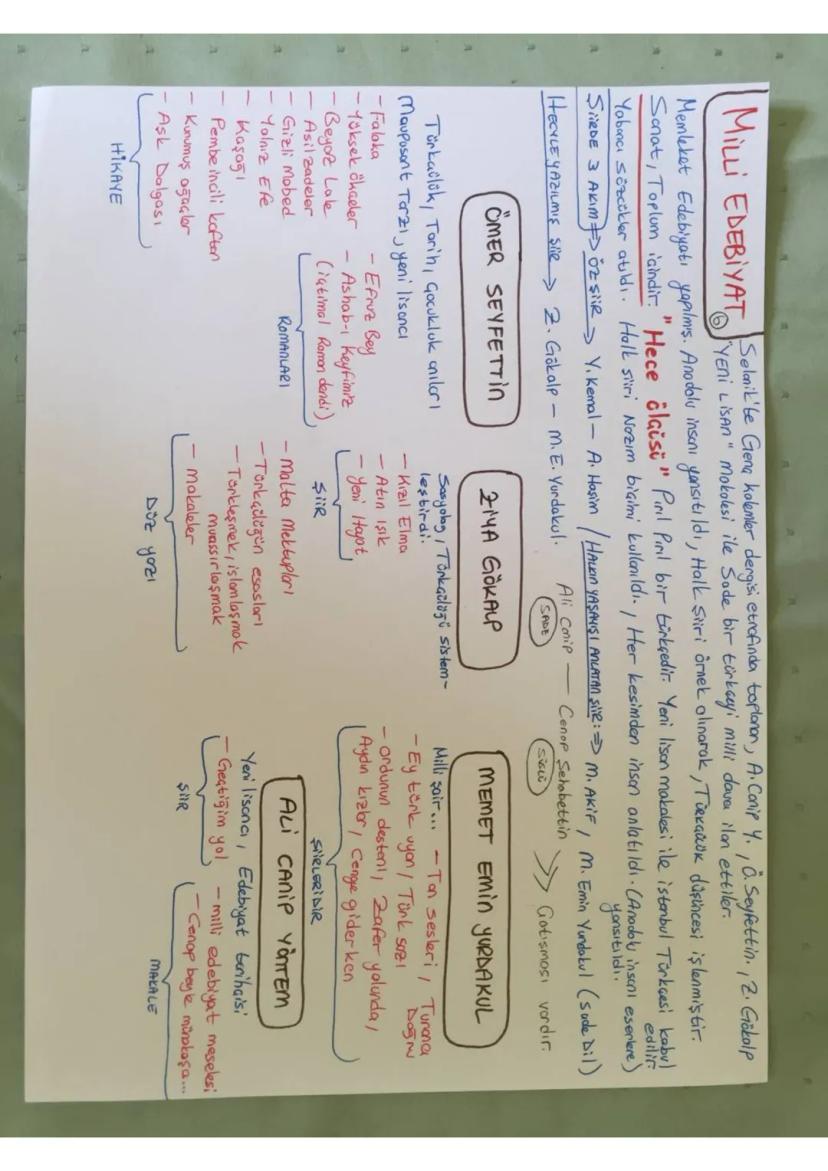 MİLLİ EDEBİYAT
6
Selanik'te Genç kalemler dergisi etrafında toplanan, A. Canip Y., Ö. Seyfettin., Z. Gökalp
"YENİ LİSAN" makalesi ile Sade bir türkçeyi milli dava ilan ettiler.
Memleket Edebiyatı yapılmış. Anadolu insanı yansıtıldı, Halk şiiri örnek alınarak, Türkçülük düşüncesi işlenmiştir.
Sanat, Toplum içindir. "Hece ölçüsü" Pırıl Pırıl bir türkçedir. Yeni lisan makalesi ile istanbul Türkçesi kabul edilir.
Yabancı sözcükler atıldı. Halk şiiri Nazım biçimi kullanıldı., Her kesimden insan anlatıldı. (Anadolu insanı eserlere) yansıtıldı.
ŞİİRDE 3 AKIM => ÖZ ŞİİR -> Y. Kemal - A. Haşim / HALKIN YAŞAYIŞI ANLATAN ŞİİR: => M. AKİF, M. Emin Yurdakul (sade Dil)
HECEYLE YAZILMIŞ ŞİİR -> Z. Gökalp - M. E. Yurdakul.
Ali Canip — Cenap Şehabettin >> Çatışması vardır.
SADE
SÜSLÜ
ÖMER SEYFETTİN
Türkçülük, Tarih, Çocukluk anıları
Maupassant Tarzı, yeni lisancı
- Falaka
- Yüksek ökçeler
- Beyaz Lale
- Asilzadeler
- Gizli Mabed
- Yalnız Efe
- Kaşağı
- Pembe incili kaftan
- Kurumuş ağaçlar
- Aşk Dalgası
HİKAYE
- Efruz Bey
- Ashab-ı Keyfimiz
(içtimai Roman dendi)
ROMANLARI
ZİYA GÖKALP
Sosyolog, Türkçülüğü sistem-
leştirdi.
- Kızıl Elma
- Altın ışık
- Yeni Hayat
ŞİİR
- Malta Mektupları
- Türkçülüğün esasları
- Türkleşmek, islamlaşmak
muasırlaşmak
- Makaleler
DÜZ YAZI
MEMET EMİN YURDAKUL
Milli şair... - Tan sesleri, Turana Doğru
- Ey türk uyan / Türk sazı
- ordunun destanı, Zafer yolunda,
Aydın kızları, Cenge giderken
ŞİİRLERİDİR
ALİ CANİP YÖNTEM
Yeni lisancı, Edebiyat tarihçisi
- Geçtiğim yol
ŞİİR
- milli edebiyat meselesi
- Cenap beyle münakaşa...
MAKALE